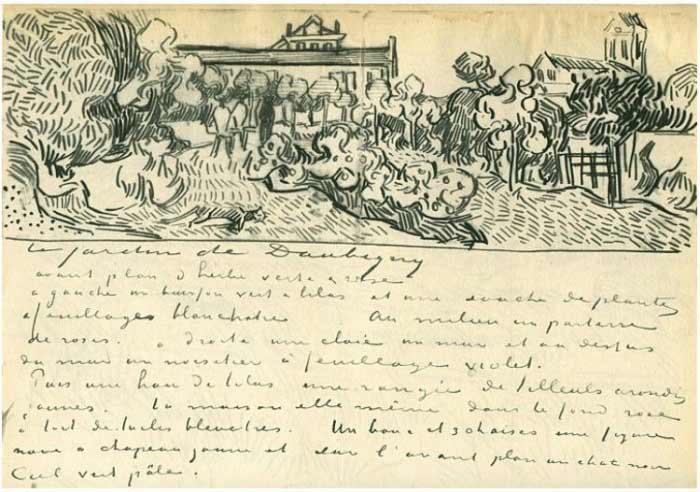 Le jardin de Daubigny
avant plan d'herbe verte & rose
a gauche un buisson vert & lilas et une souche de plantes
a feuillages blanchatres Au milieu un parterre
de roses. a droite une claie un mur et au dessus
du mur un noisetier à feuillage violet.
Puis une haie de lilas une rangée de tilleuls arrondis
jaunes. La maison elle même dans le fond rose
à toit de tuiles bleuatres. Un banc et 3 chaises une figure
noire à chapeau jaune et sur l'avant plan un chat noir
Ciel vert pâle.